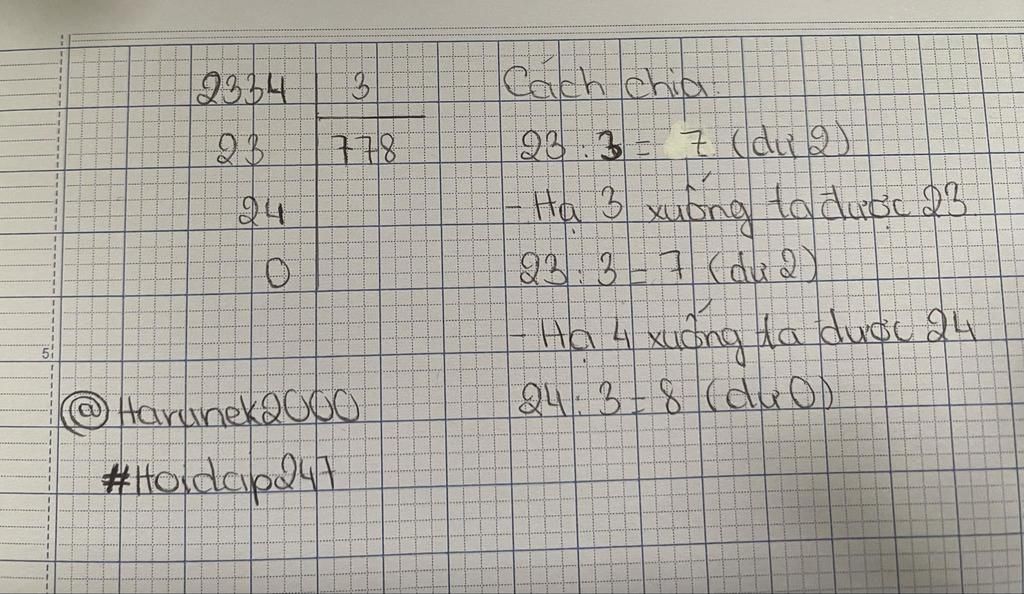 2334 3
23 778
24
0
Cách chia.
23 : 3 = 7 (dư 2)
- Hạ 3 xuống ta được 23
23 : 3 = 7 (dư 2)
- Hạ 4 xuống ta được 24
24 : 3 = 8 (dư 0)
@Harunek2000
#Hoidap247
5